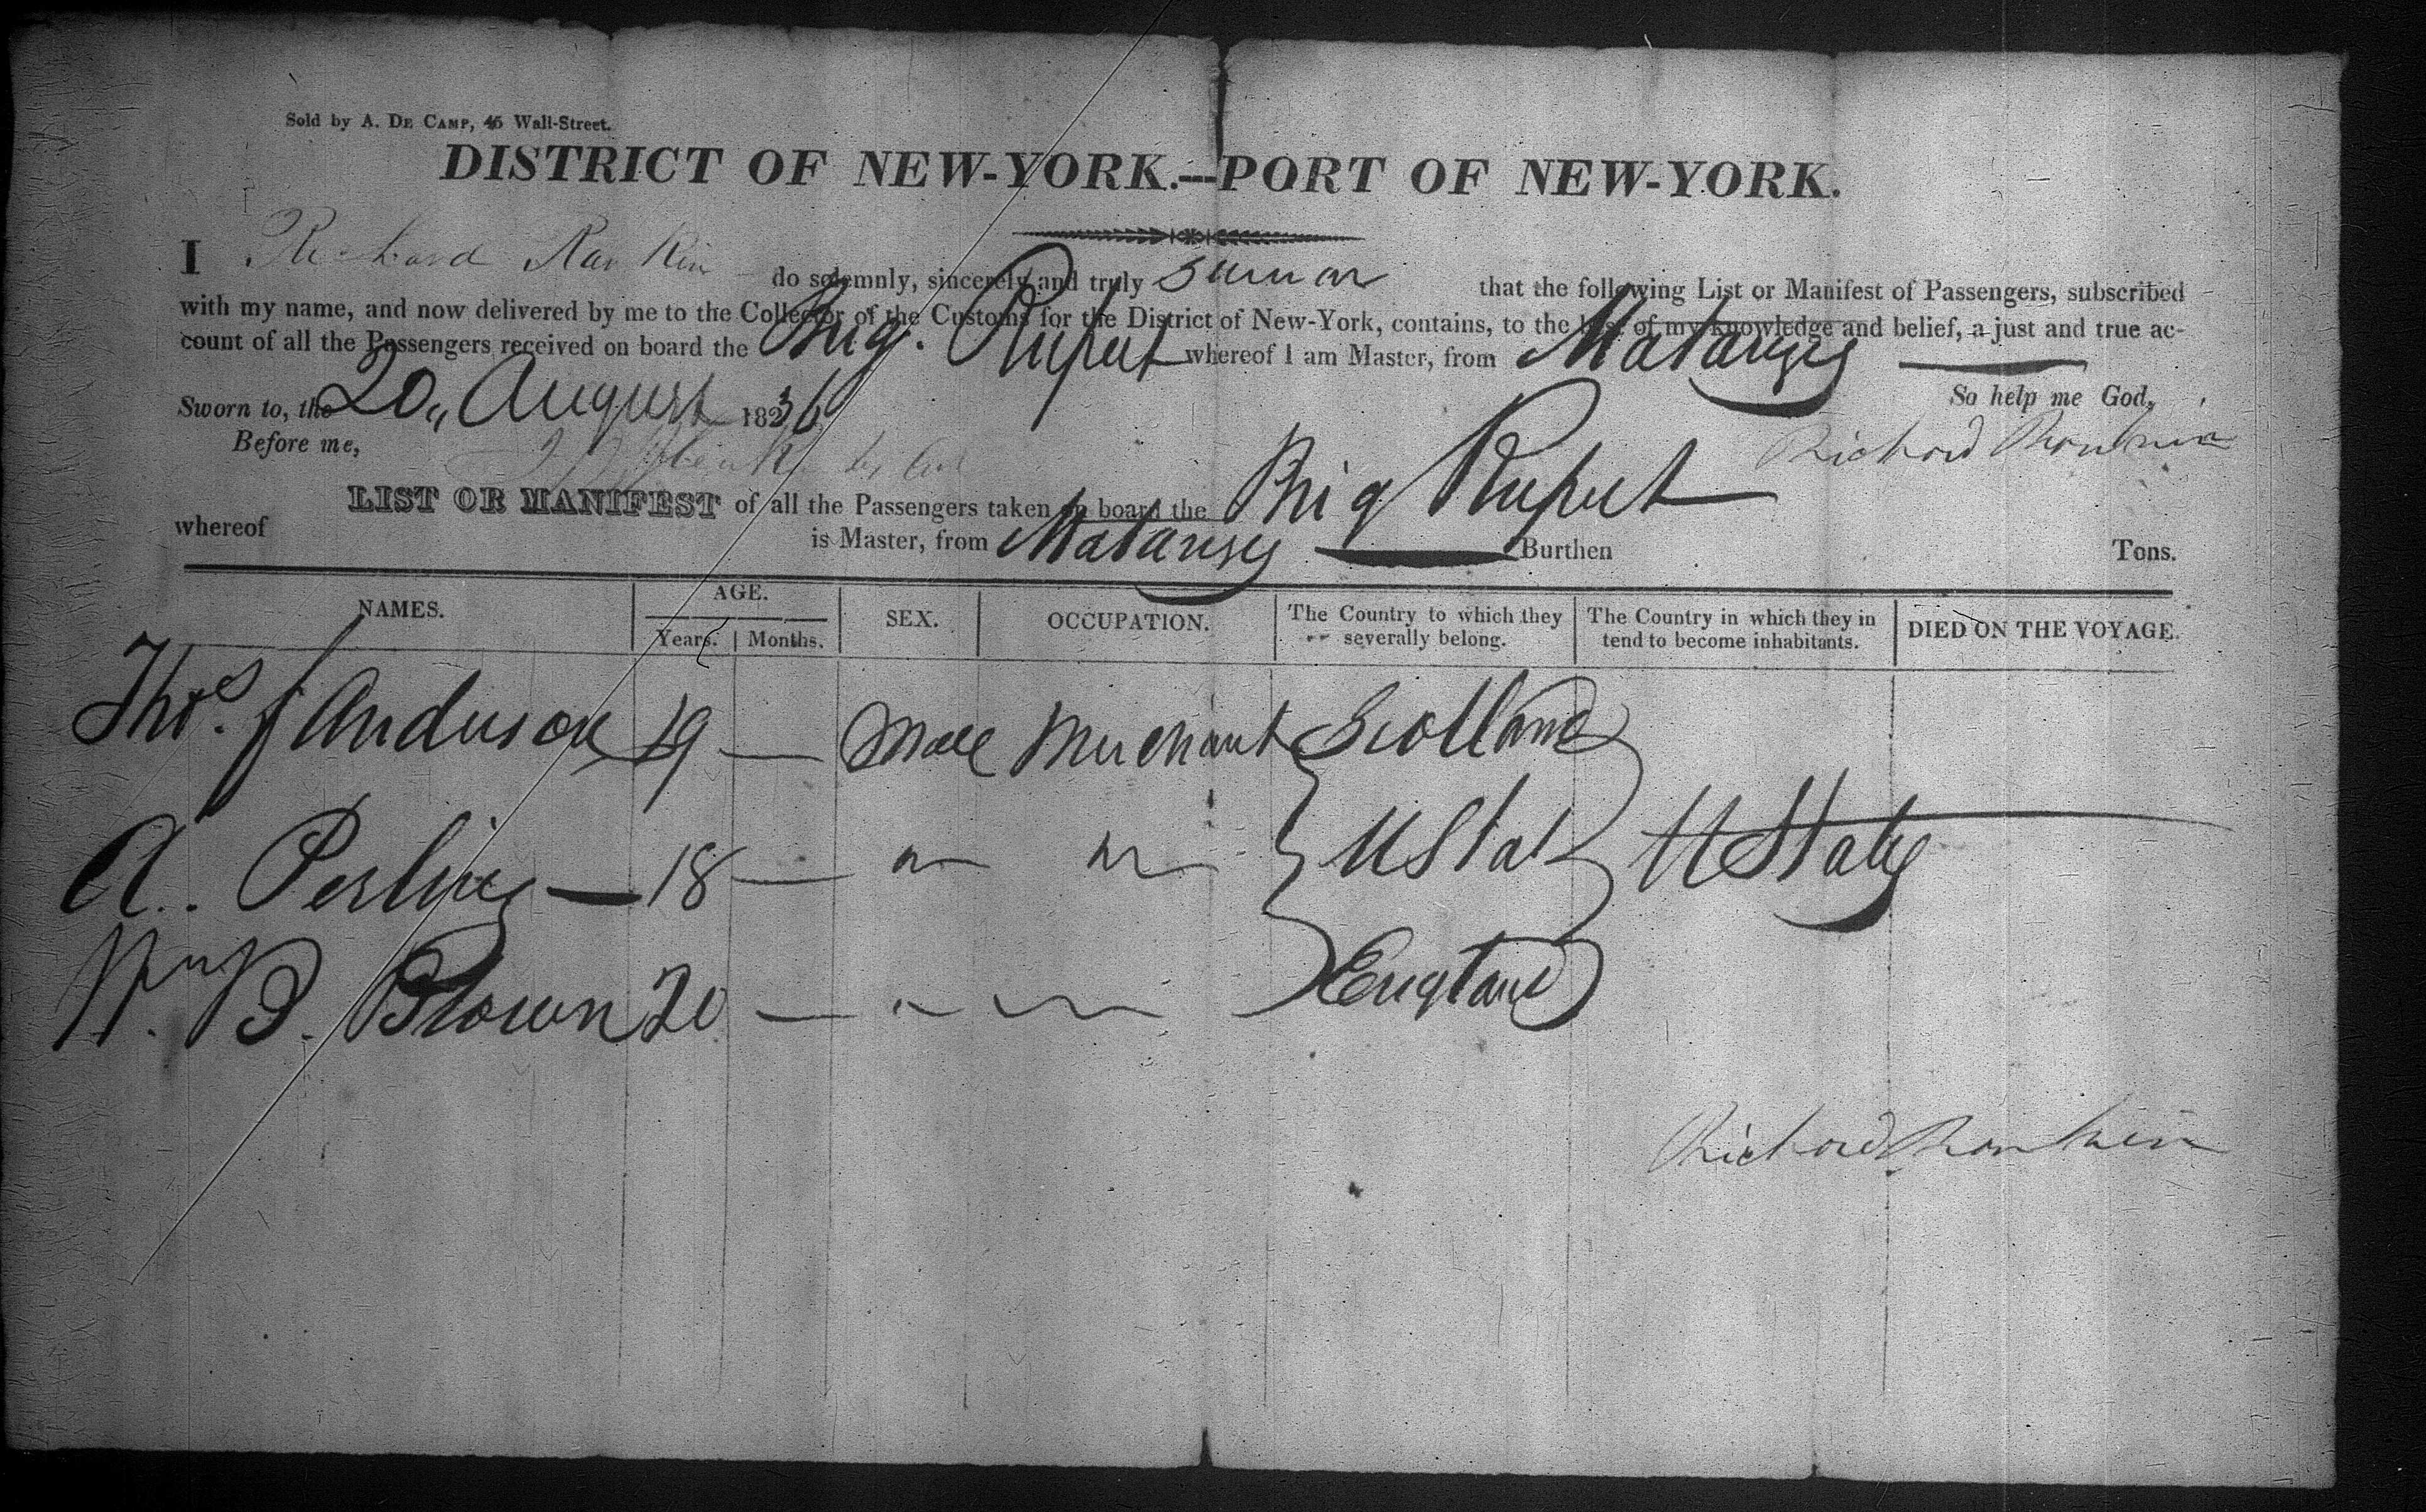 Sold by A. DE CAMP, 45 Wall-Street.
DISTRICT OF NEW-YORK.---PORT OF NEW-YORK.
I Richard Rankin do solemnly, sincerely and truly swear that the following List or Manifest of Passengers, subscribed
with my name, and now delivered by me to the Collector of the Customs for the District of New-York, contains, to the best of my knowledge and belief, a just and true ac-
count of all the Passengers received on board the Brig. whereof I am Master, from Matanzas
Sworn to, the 20,, August 1836 So help me God,
Before me, Richard Rankin
LIST OR MANIFEST of all the Passengers taken on board the Brig
whereof is Master, from Matanzas Burthen Tons.
NAMES. AGE. SEX. OCCUPATION. The Country to which they severally belong. The Country in which they in tend to become inhabitants. DIED ON THE VOYAGE.
Years. Months.
Thos. J Anderson 19 — Male Merchant Scotland
A.. — 18 — " " U States U States
Wm B. Brown 20 — " " England
Richard Rankin